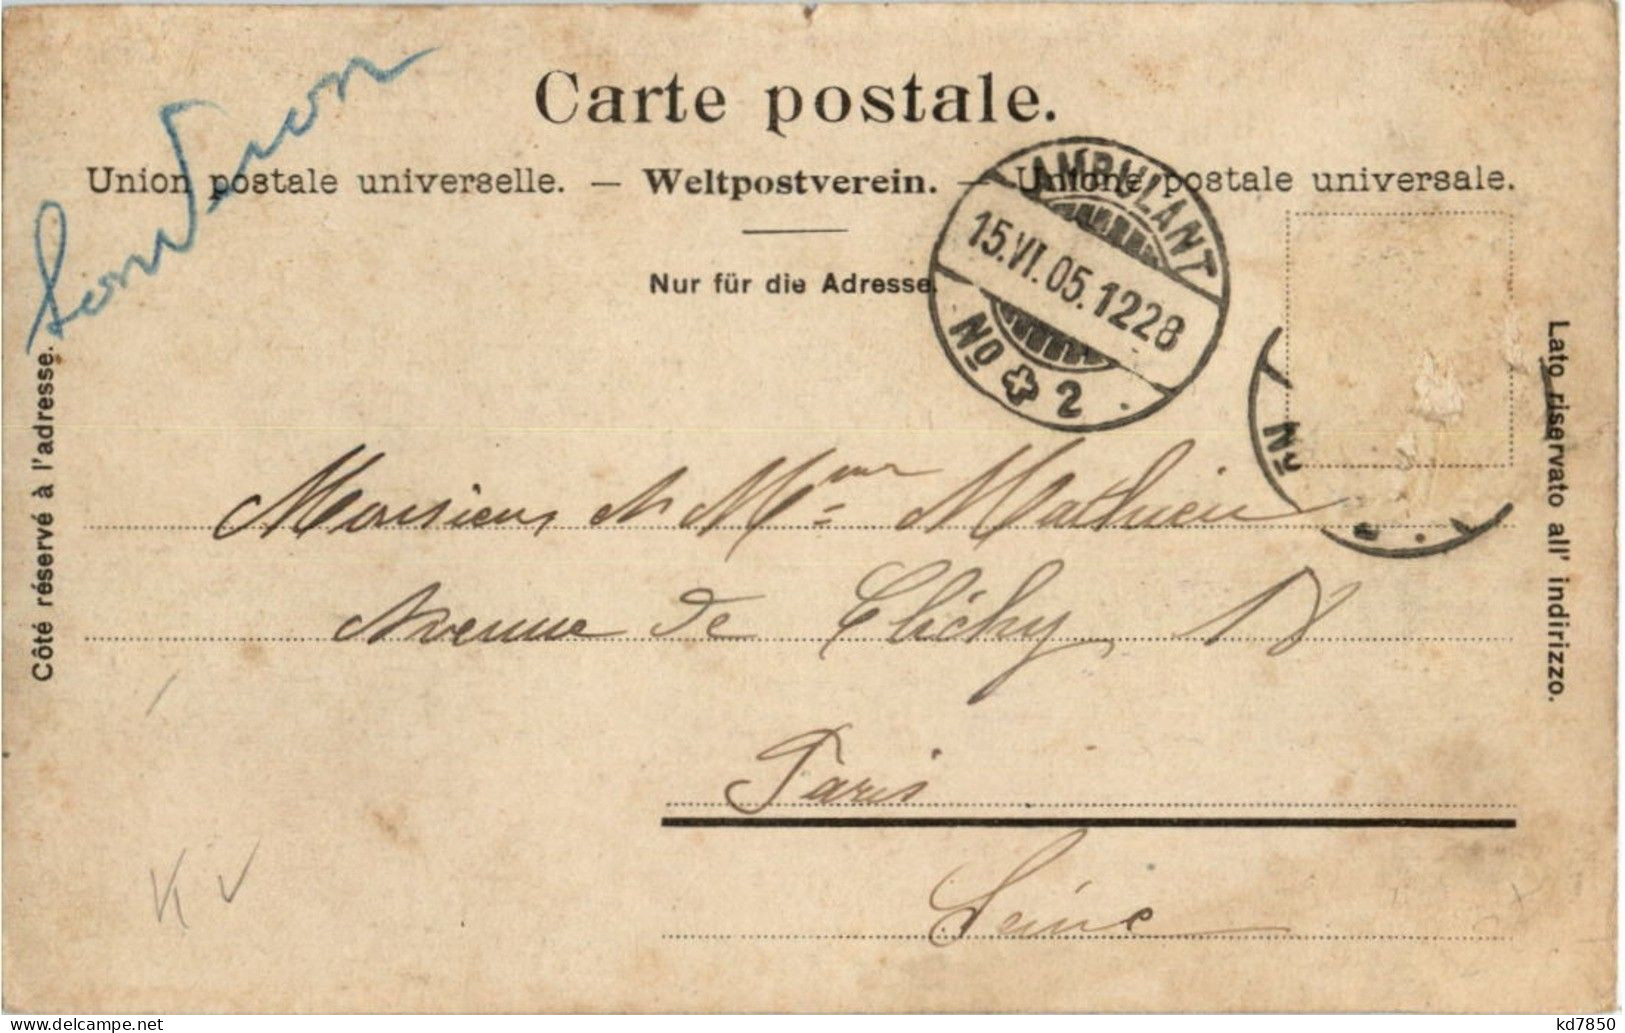 Carte postale.
Union postale universelle. — Weltpostverein. — Unione postale universale.
Nur für die Adresse.
AMBULANT
15.VI.05.1228
No 2
No
Côté réservé à l'adresse.
Lato riservato all' indirizzo.
Monsieur et Mme Mathieu
Avenue de Clichy, 18
Paris
Seine
K V
kd7850